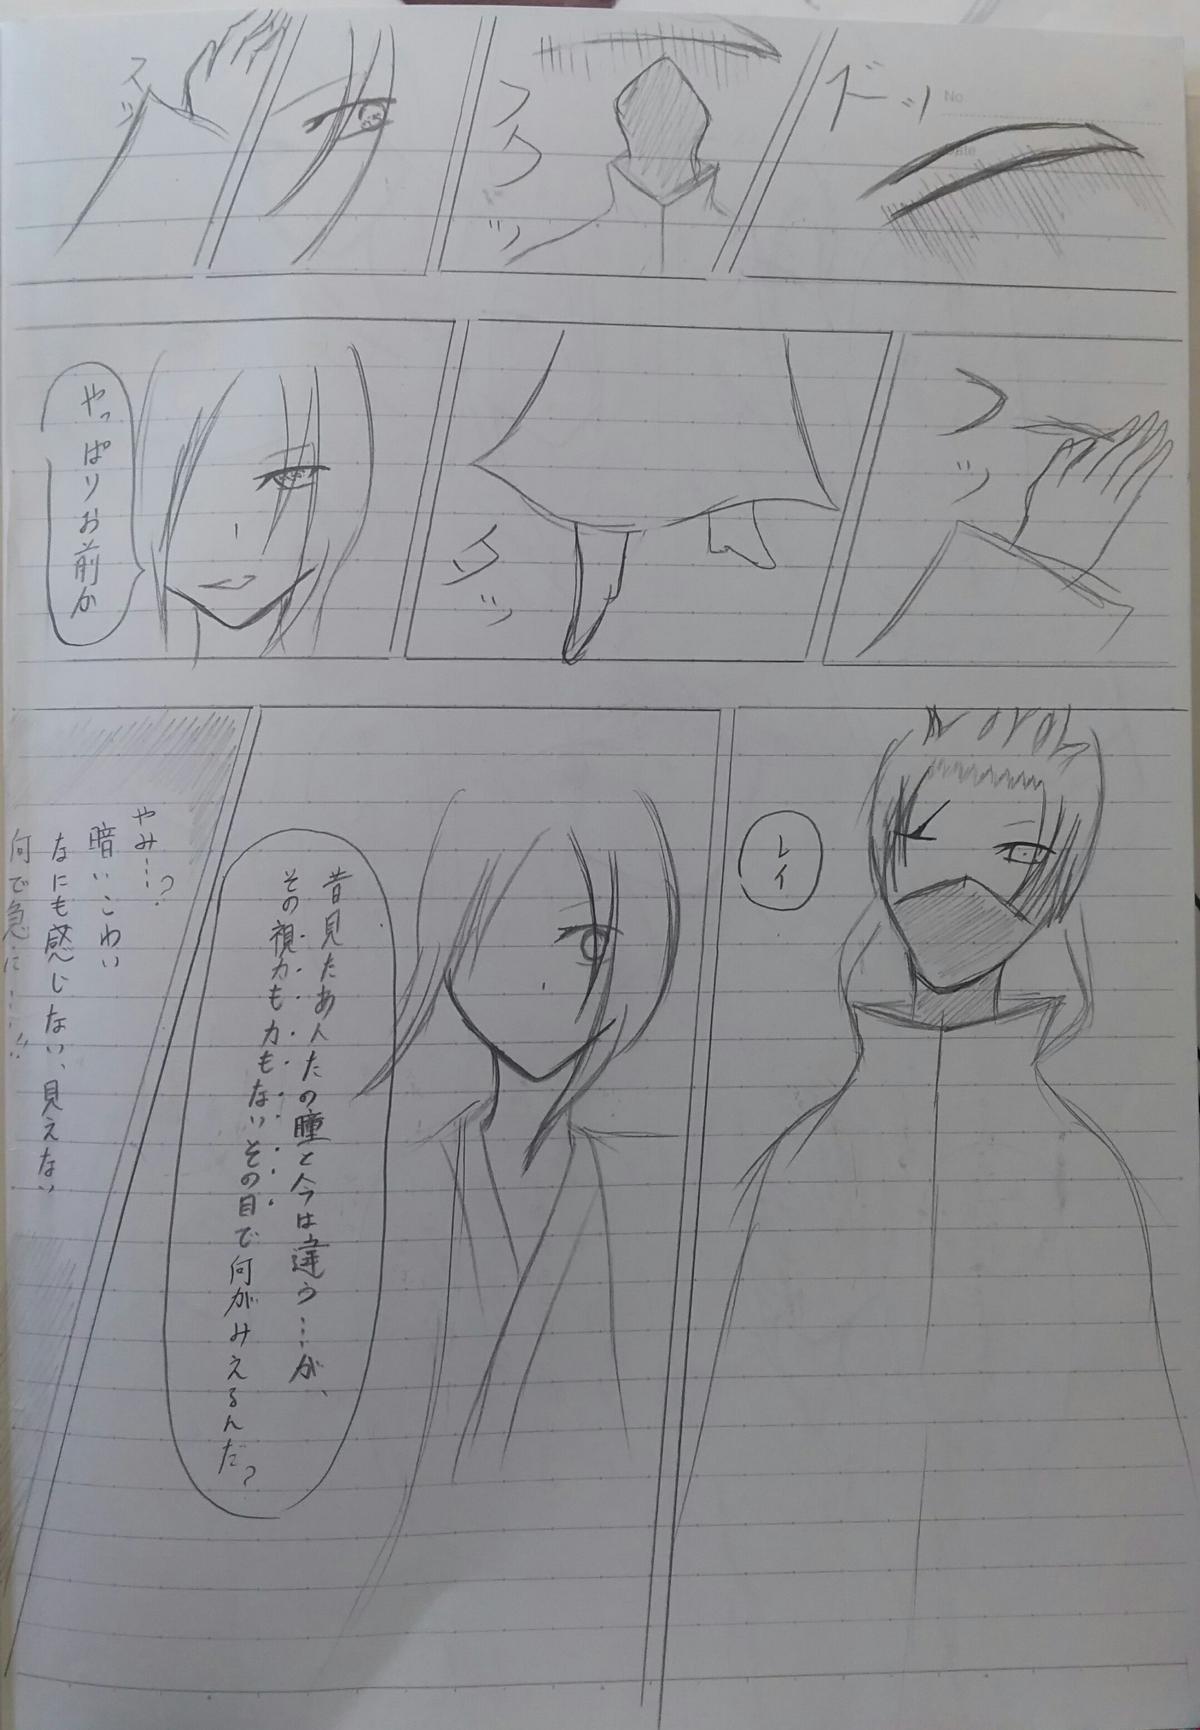 No
ズッ
フ
ス
ッ
スッ
フッ
スッ
やっぱりお前か
レイ
昔見たあんたの瞳と今は違う…が、
その視力も力もないその目で何がみえるんだ?
やみ…?
暗いこわい
なにも感じない、見えない
何で急に…!!